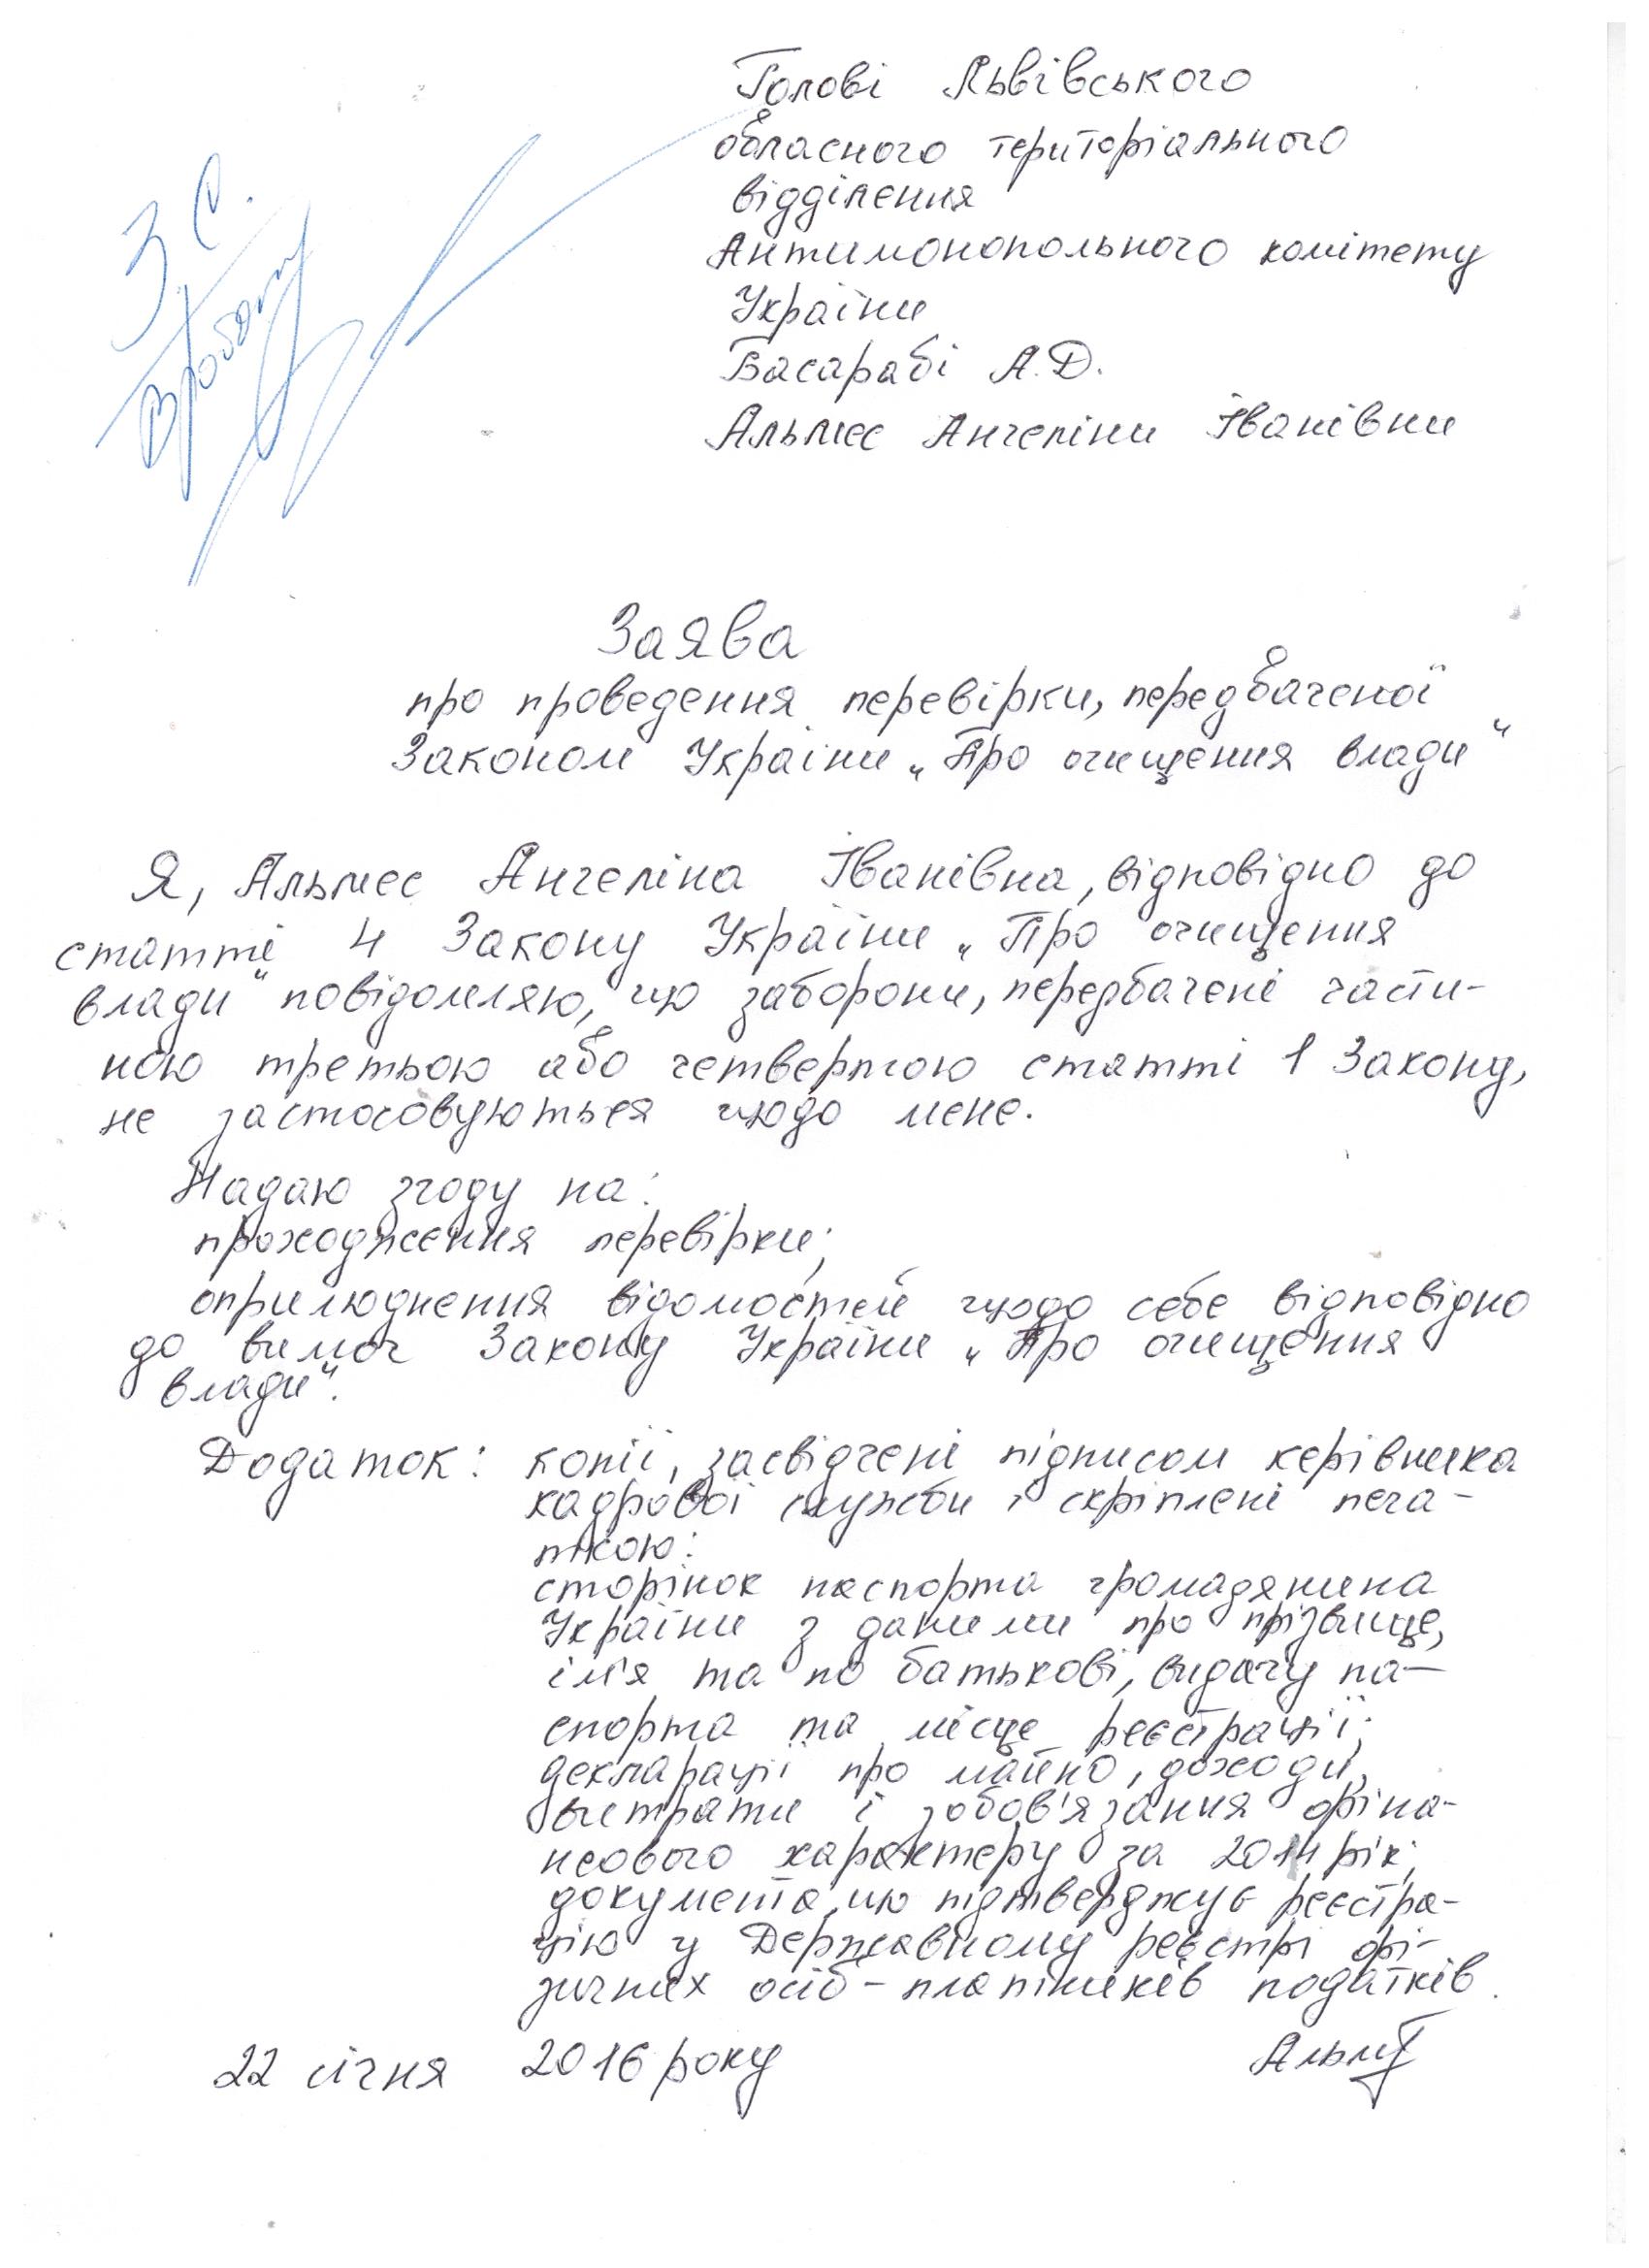 З С.
В роботу
Голові Львівського
обласного територіального
відділення
Антимонопольного комітету
України
Басарабі А.Д.
Альмес Ангеліни Іванівни
Заява
про проведення перевірки, передбаченої
Законом України „Про очищення влади“
Я, Альмес Ангеліна Іванівна, відповідно до
статті 4 Закону України „Про очищення
влади“ повідомляю, що заборони, передбачені части-
ною третьою або четвертою статті 1 Закону,
не застосовуються щодо мене.
Надаю згоду на:
проходження перевірки;
оприлюднення відомостей щодо себе відповідно
до вимог Закону України „Про очищення
влади“.
Додаток: копії, засвідчені підписом керівника
кадрової служби і скріплені печа-
ткою:
сторінок паспорта громадянина
України з даними про прізвище,
ім'я та по батькові, видачу па-
спорта та місце реєстрації;
декларації про майно, доходи,
витрати і зобов'язання фіна-
нсового характеру за 2014 рік;
документа, що підтверджує реєстра-
цію у Державному реєстрі фі-
зичних осіб - платників податків.
22 січня 2016 року